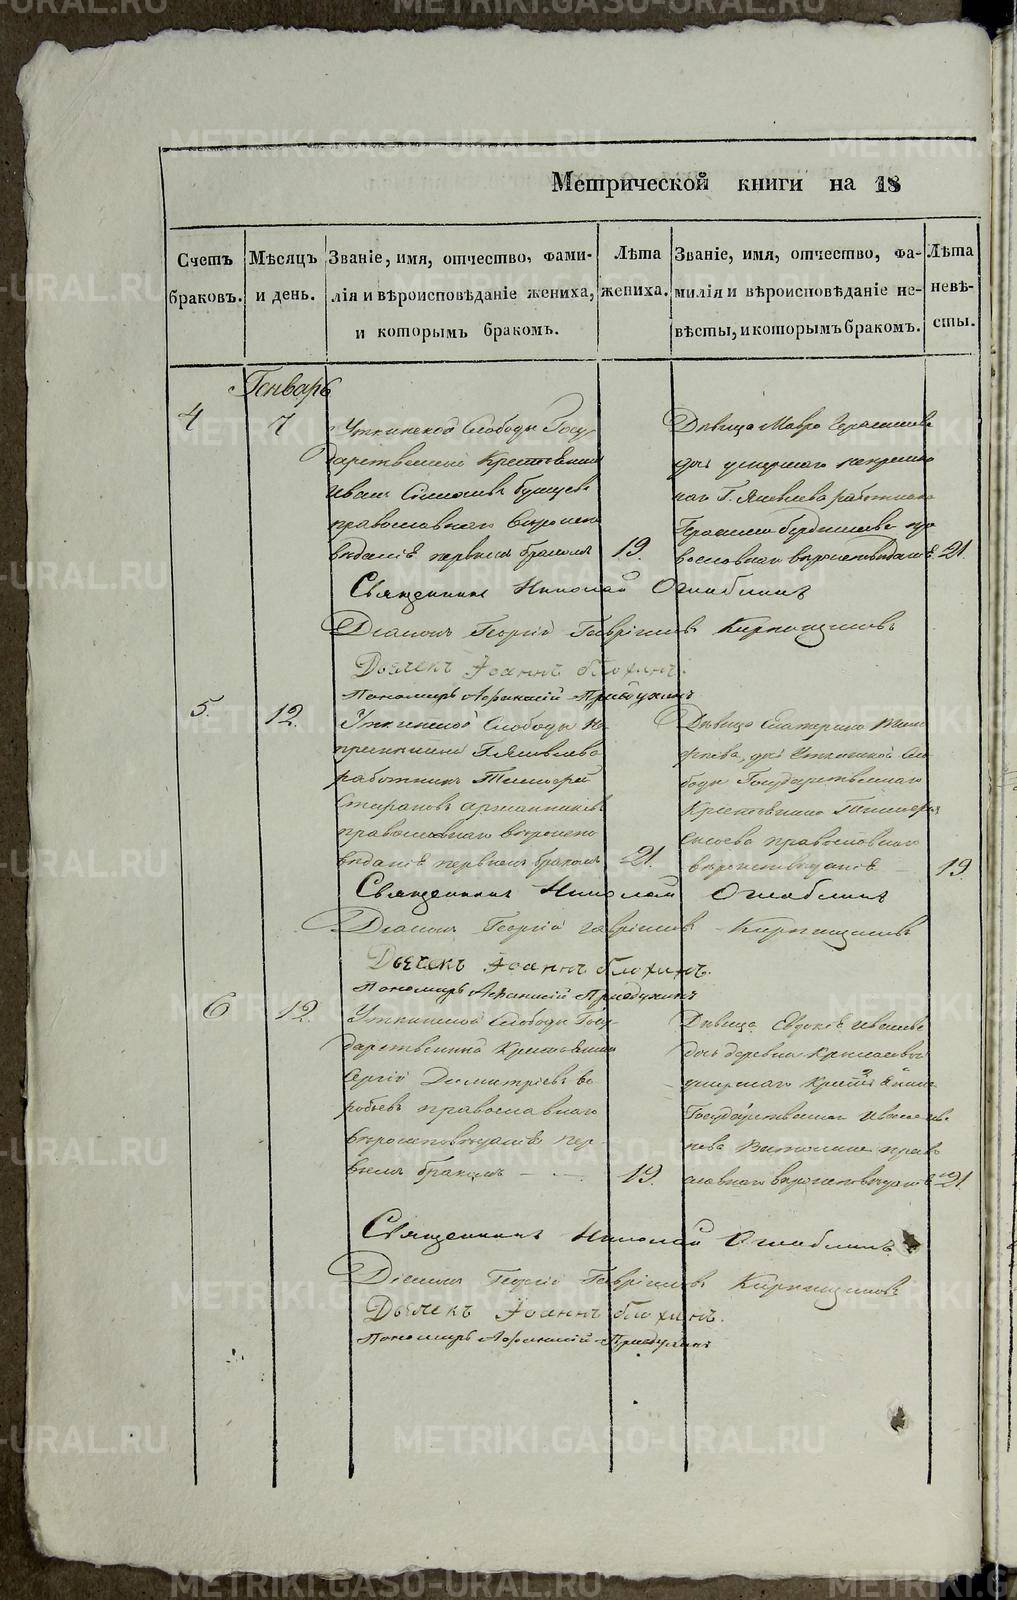 METRIKI.GASO-URAL.RU
Метрической книги на 18
Счетъ браковъ.
Мѣсяцъ и день.
Званіе, имя, отчество, фами-
лія и вѣроисповѣданіе жениха,
и которымъ бракомъ.
Лѣта
жениха.
Званіе, имя, отчество, фа-
милія и вѣроисповѣданіе не-
вѣсты, и которымъ бракомъ.
Лѣта
невѣ-
сты.
Генварь
4
7
Уткинской Слободы Госу-
дарственный Крестьянин
Иванъ
православнаго вѣроиспо
вѣданiя первымъ бракомъ
19.
Дѣвица Мавра Герасимова
дочь умершаго непремѣн
наго Г. Яковлева работника
Герасима пра
вославнаго вѣроисповѣданiя
21.
Священникъ Николай Оглоблинъ
Діаконъ Георгій Гаврiиловъ Кирпищиковъ
Дьячекъ Іоаннъ Блохинъ.
Пономарь Афанасій
5.
12.
Уткинской Слободы не
премѣнный Г. Яковлева
работникъ Тимофей
православнаго вѣроиспо
вѣданiя первымъ бракомъ
21.
Дѣвица Екатерина
дочь Уткинской Сло
боды Государственнаго
Крестьянина
православнаго
вѣроисповѣданiя
19.
Священникъ Николай Оглоблинъ
Діаконъ Георгій Гаврiиловъ Кирпищиковъ
Дьячекъ Іоаннъ Блохинъ.
Пономарь Афанасій
6
12.
Уткинской Слободы Госу-
дарственный Крестьянин
Сергій Димитріевъ Во
робьевъ православнаго
вѣроисповѣданiя пер-
вымъ бракомъ
19.
Дѣвица Евдокія Иванова
дочь деревни
умершаго
Государственнаго
право
славнаго вѣроисповѣданiя
21.
Священникъ Николай Оглоблинъ
Діаконъ Георгій Гаврiиловъ Кирпищиковъ
Дьячекъ Іоаннъ Блохинъ.
Пономарь Афанасій